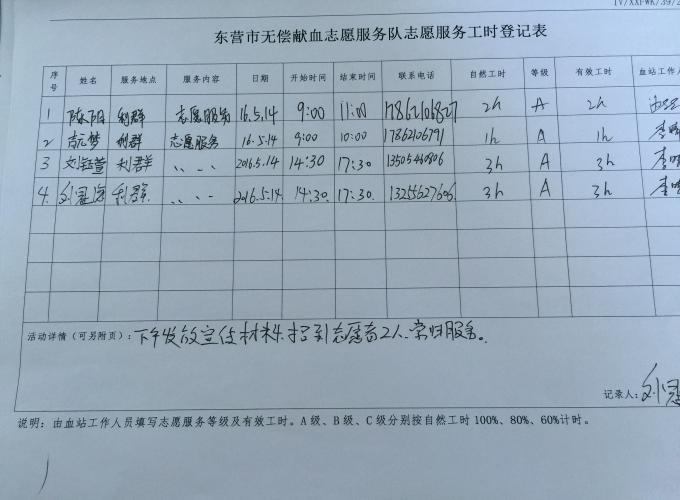 东营市无偿献血志愿服务队志愿服务工时登记表
序号 姓名 服务地点 服务内容 日期 开始时间 结束时间 联系电话 自然工时 等级 有效工时 血站工作人
1 陈阳 利群 志愿服务 16.5.14 9:00 11:00 17862106827 2h A 2h
2 利群 志愿服务 16.5.14 9:00 10:00 17862106791 1h A 1h
3 利群 〃 2016.5.14 14:30 17:30 3h A 3h
4. 利群. 〃 2016.5.14 14:30. 17:30. 13255627606 3h A 3h
活动详情（可另附页）：下午发放宣传材料.招到志愿者2人.常归服务。
记录人：刘
说明：由血站工作人员填写志愿服务等级及有效工时。A级、B级、C级分别按自然工时100%、80%、60%计时。